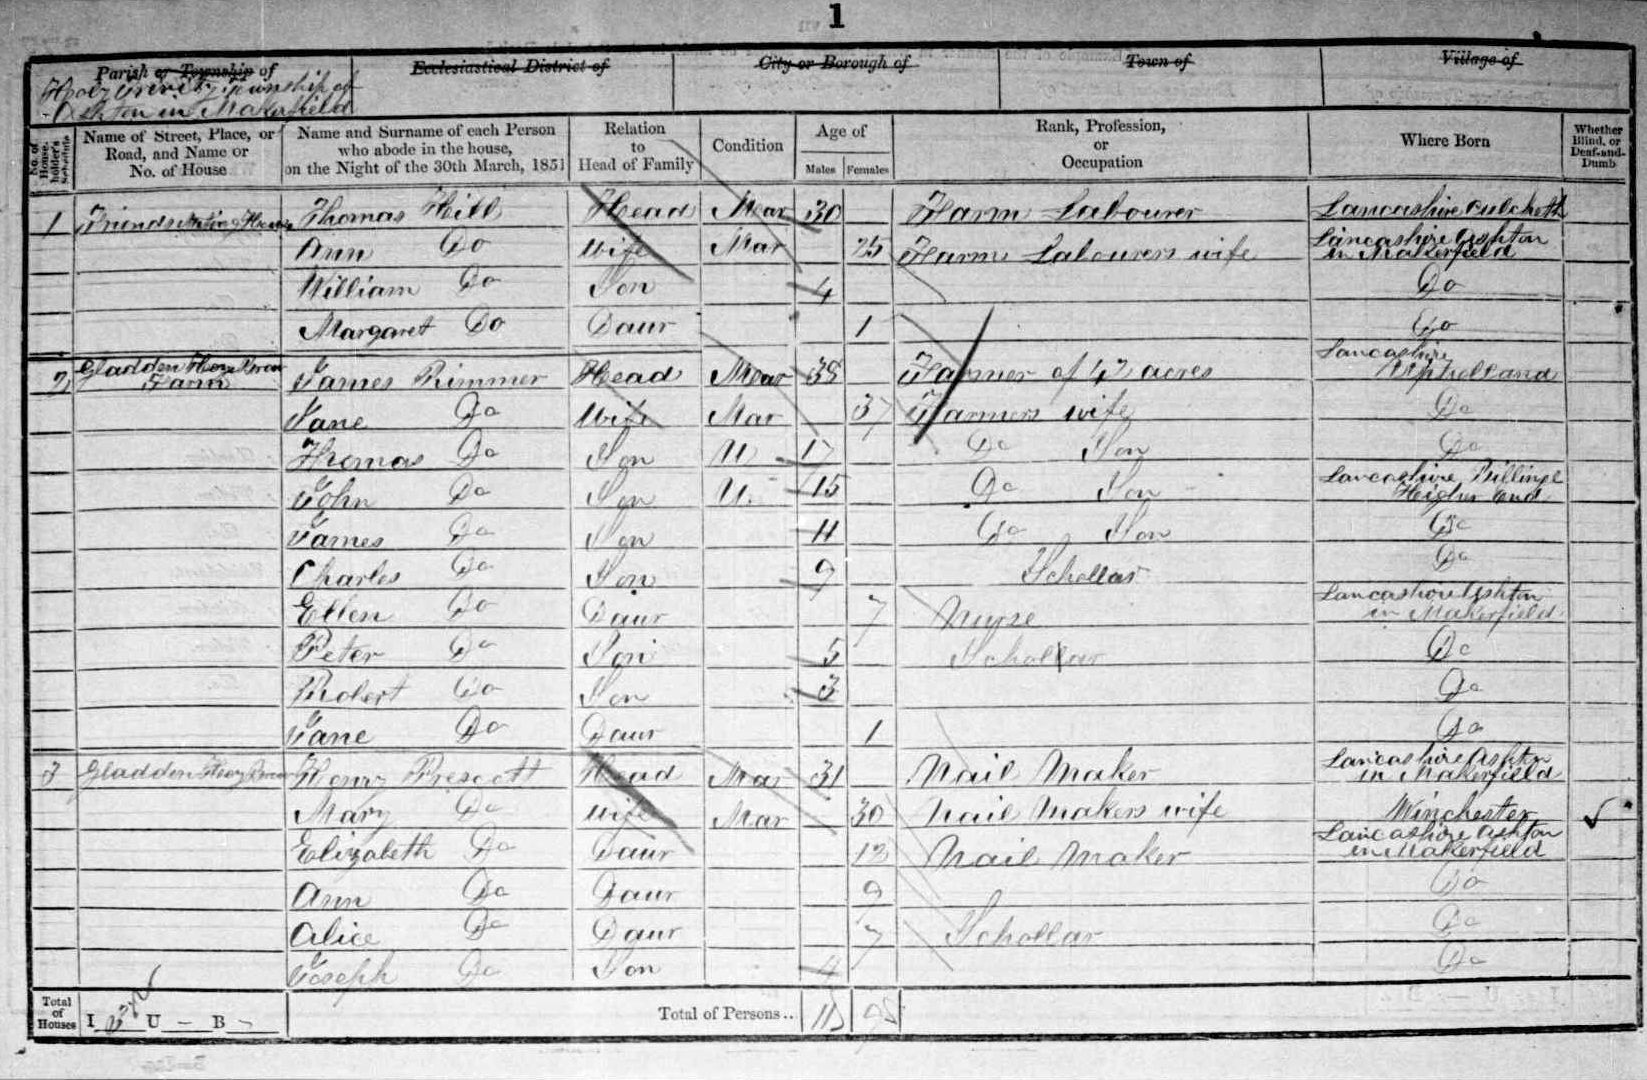 1
Parish or Township of
Ecclesiastical District of
City or Borough of
Town of
Village of
Holy Trinity Township of
Ashton in Makerfield
No. of House-holder's Schedule
Name of Street, Place, or Road, and Name or No. of House
Name and Surname of each Person who abode in the house, on the Night of the 30th March, 1851
Relation to Head of Family
Condition
Age of
Males Females
Rank, Profession, or Occupation
Where Born
Whether Blind, or Deaf-and-Dumb
1 Friends Meting House Thomas Hill Head Mar 30 Farm Labourer Lancashire Culcheth
Ann Do Wife Mar 25 Farm Labourers wife Lancashire Ashton in Makerfield
William Do Son 4 Do
Margaret Do Daur 1 Do
2 Gladden Farm James Rimmer Head Mar 38 Farmer of 42 acres Lancashire Upholland
Jane Do Wife Mar 37 Farmers wife Do
Thomas Do Son U 17 Do Son Do
John Do Son U 15 Do Son Lancashire Billinge Higher End
James Do Son 11 Do Son Do
Charles Do Son 9 Schollar Do
Ellen Do Daur 7 Nurse Lancashire Ashton in Makerfield
Peter Do Son 5 Schollar Do
Robert Do Son 3 Do
Jane Do Daur 1 Do
3 Gladden Henry Prescott Head Mar 31 Nail Maker Lancashire Ashton in Makerfield
Mary Do Wife Mar 30 Nail Makers wife Winchester
Elizabeth Do Daur 12 Nail Maker Lancashire Ashton in Makerfield
Ann Do Daur 9 Do
Alice Do Daur 7 Schollar Do
Joseph Do Son 4 Do
Total of Houses I U — B —
Total of Persons..